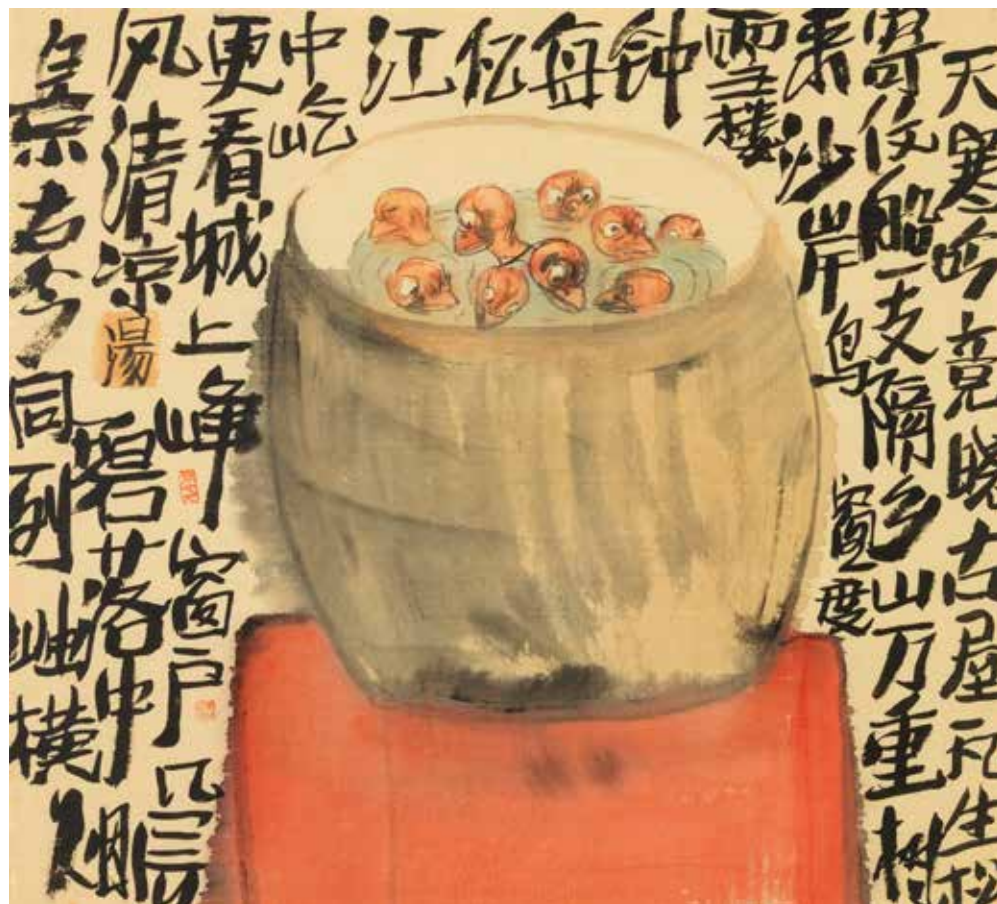 天寒吟竟晓古屋瓦生松
寄信船一支隔乡山万重树
来沙岸鸟窗度
雪楼
钟
每
忆
江
中屿
更看城上峰窗户几层
风清凉碧落中烟
湯
景古今同列岫横